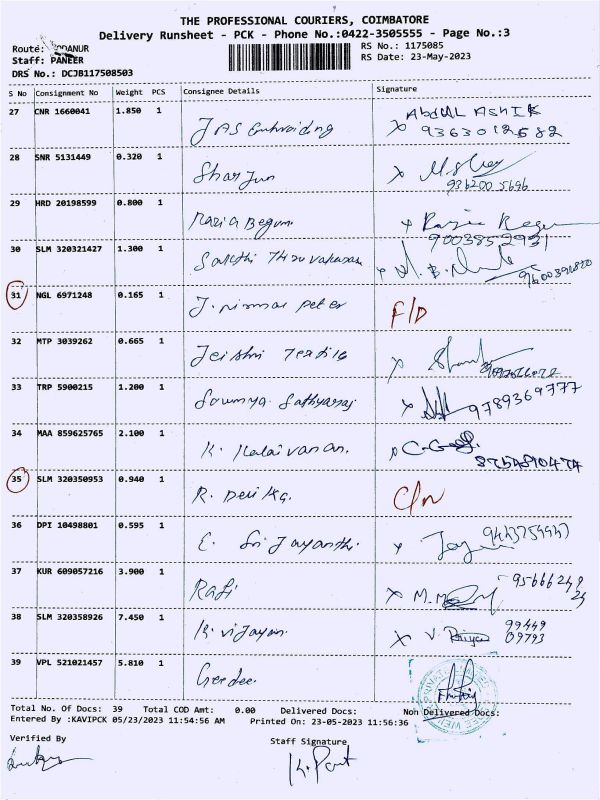 THE PROFESSIONAL COURIERS, COIMBATORE
Delivery Runsheet - PCK - Phone No.:0422-3505555 - Page No.:3
Route: PODANUR
Staff: PANEER
DRS No.: DCJB117508503
RS No.: 1175085
RS Date: 23-May-2023
S No Consignment No Weight PCS Consignee Details Signature
27 CNR 1660041 1.850 1 JAS Embroiding ABDUL ASHIK
9363012682
28 SNR 5131449 0.320 1 Sharjun
9362005696
29 HRD 20198599 0.800 1 Razia Begum Razia Begum
9003852931
30 SLM 320321427 1.300 1 Sakthi
31 NGL 6971248 0.165 1 J. nirmal peter F/D
32 MTP 3039262 0.665 1 Jei Shri
33 TRP 5900215 1.200 1 Soumya Sathyaraj 9789369777
34 MAA 859625765 2.100 1 K. Kalaivanan.
35 SLM 320350953 0.940 1 R. Devika. C/N
36 DPI 10498801 0.595 1 E. Sri Jayanthi.
37 KUR 609057216 3.900 1 Rafi
38 SLM 320358926 7.450 1 K. Vijayan. 99449
09793
39 VPL 521021457 5.810 1
Total No. Of Docs: 39 Total COD Amt: 0.00 Delivered Docs: Non Delivered Docs:
Entered By :KAVIPCK 05/23/2023 11:54:56 AM Printed On: 23-05-2023 11:56:36
Verified By Staff Signature